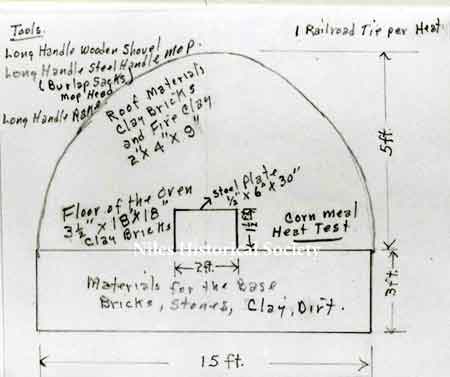 Tools.
1 Railroad Tie per Heat
Long Handle Wooden Shovel
Long Handle Steel Handle mop.
(Burlap Sacks)
Mop Head
Long Handle
Roof Materials
Clay Bricks
and Fire Clay
2" x 4" x 9"
5 ft.
Steel Plate
1/2" x 6" x 30"
Floor of the Oven
3 1/2" x 18" x 18"
Clay Bricks
1 1/2 ft
2 ft.
Corn meal
Heat Test
Niles Historical Society
3 ft.
Materials for the Base
Bricks, Stones, Clay, Dirt.
15 ft.